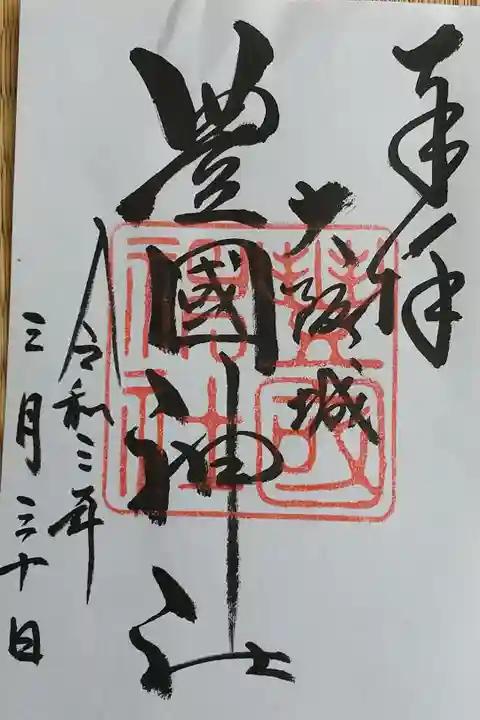 奉拝
大阪城
豊國神社
令和三年
三月三十日
豊國神社